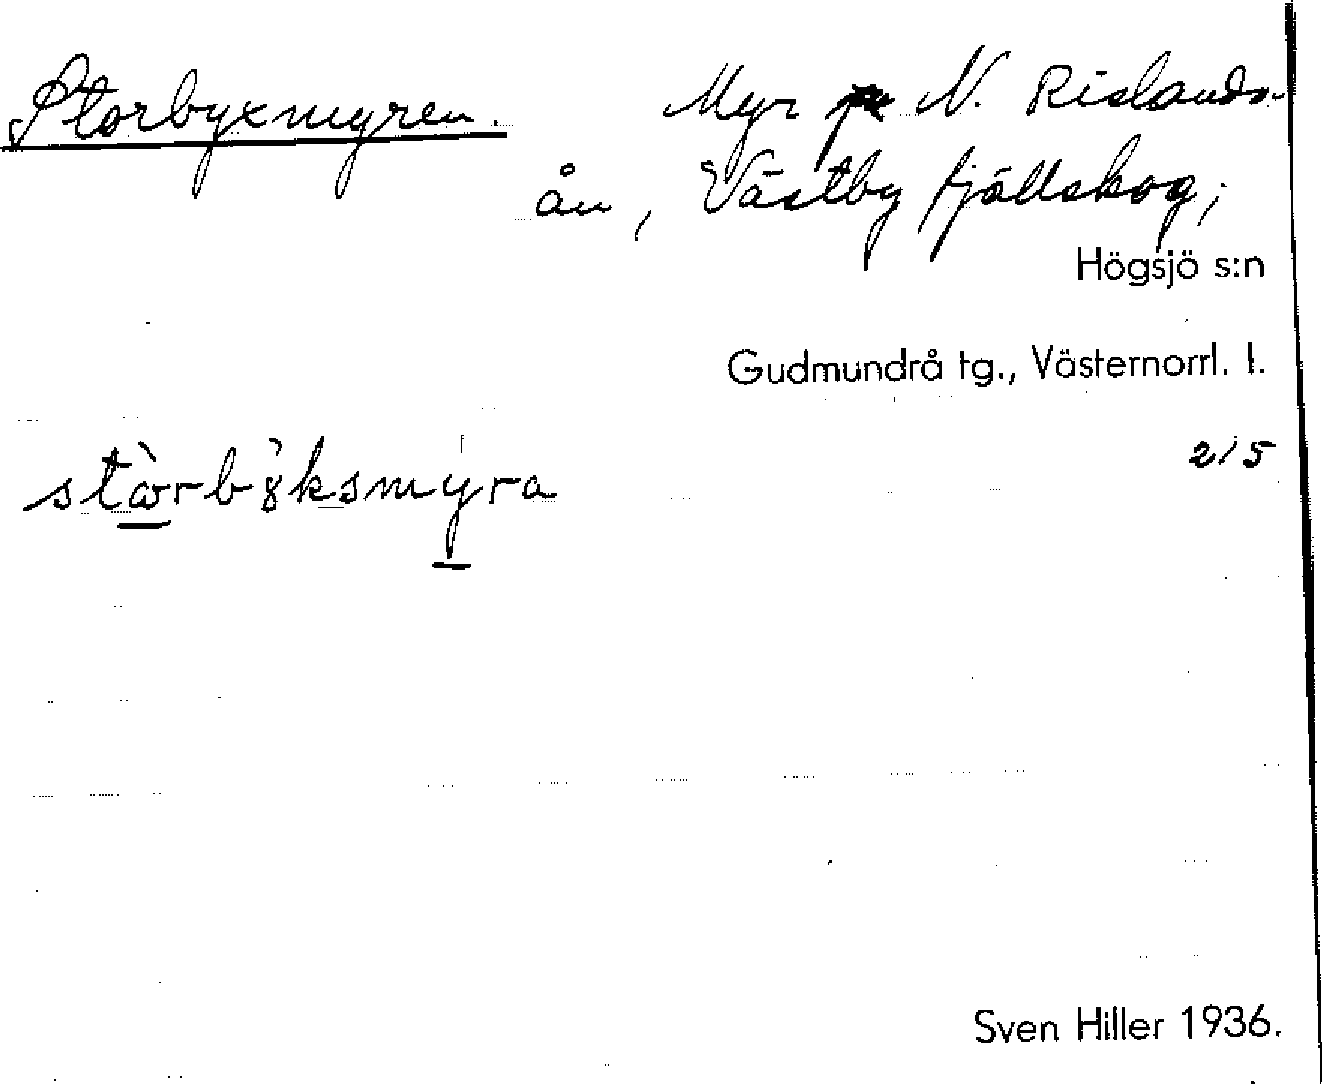 Storbyxmyren. Myr N. Rislands-
ån, Västby fjällskog,
Högsjö s:n
Gudmundrå tg., Västernorrl. l.
2/5
Sven Hiller 1936.